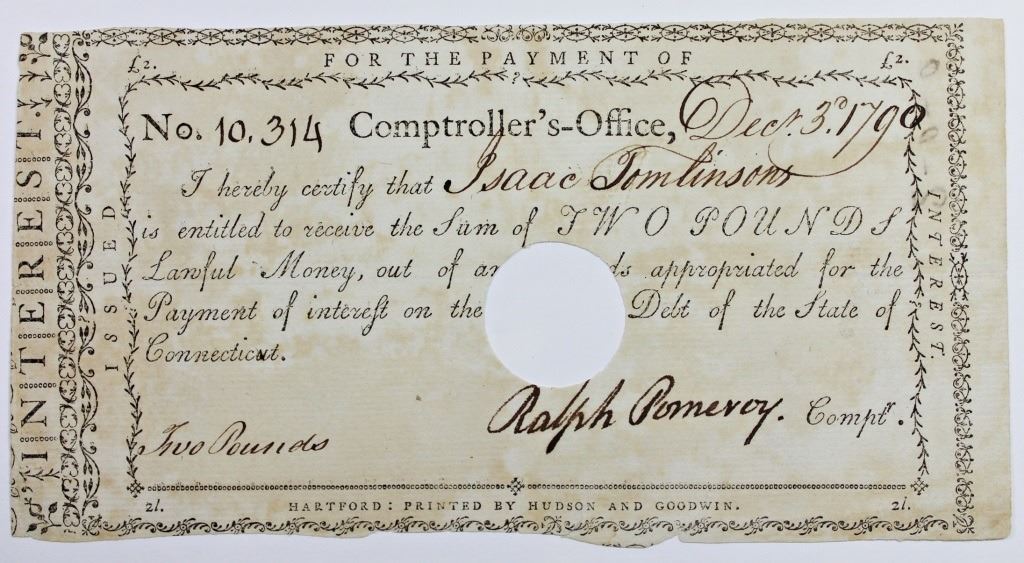 FOR THE PAYMENT OF
£2. £2.
No. 10.314 Comptroller's-Office, Decr. 3d. 1790
I hereby certify that Isaac Tomlinson
is entitled to receive the Sum of TWO POUNDS
Lawful Money, out of an ds appropriated for the
Payment of intereſt on the Debt of the State of
Connecticut.
Ralph Pomeroy. Comptr.
Two Pounds
2l. HARTFORD: PRINTED BY HUDSON AND GOODWIN. 2l.
INTEREST.
ISSUED
INTEREST.